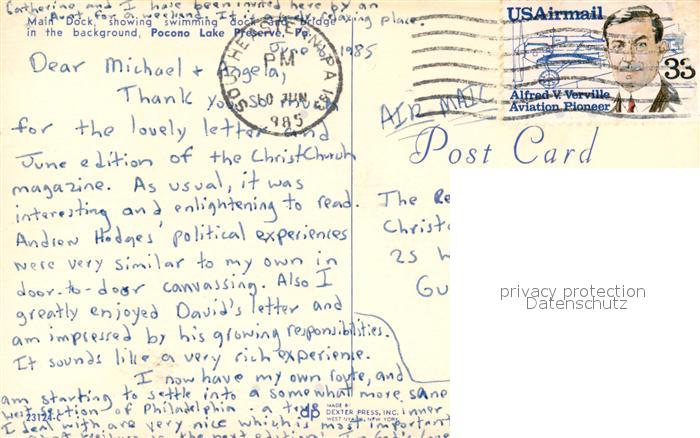 Catherine and I have been invited here by an
for a weekend. It relaxing place
Main Dock, showing swimming dock and bridge
in the background, Pocono Lake Preserve, Pa.
June 1985
SOUTHEASTERN, PA 193
PM
JUN
1985
USAirmail
33
Alfred V. Verville
Aviation Pioneer
AIR MAIL
Post Card
Dear Michael + Angela,
Thank you so much
for the lovely letter and
June edition of the ChristChurch
magazine. As usual, it was
interesting and enlightening to read.
Andrew Hodges' political experiences
were very similar to my own in
door-to-door canvassing. Also I
greatly enjoyed David's letter and
am impressed by his growing responsibilities.
It sounds like a very rich experience.
I now have my own route, and
am starting to settle into a somewhat more sane
West section of Philadelphia - a inner
I deal with are very nice which is most important
in the next edition! In God's love
23124-C
MADE BY
dp DEXTER PRESS, INC.
WEST NYACK, NEW YORK
The Re
Christ
25 W
Gu
privacy protection
Datenschutz